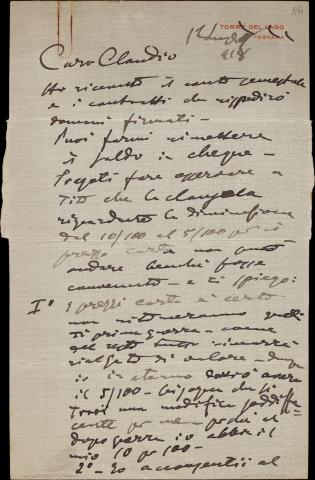 TORRE DEL LAGO
TOSCANA
1º Luglio
918
Caro Claudio
Ho ricevuto il conto semestrale
e i contratti che rispedirò
domani firmati -
Puoi farmi rimettere
il saldo in cheque -
Pregoti fare osservare a
Tito che la clausola
riguardante la diminuzione
dal 10/100 al 5/100 per il
prezzo carta non può
andare benchè fosse
convenuto - e ti spiego:
Iº I prezzi carta è certo
non ritorneranno quelli
di prima guerra - come
del resto tutto rimarrà
rialzato di valore - dunque
io in eterno dovrò avere
il 5/100 - bisogna che si
trovi una modifica soddisfa-
cente per me - perchè
dopo guerra io abbia il
mio 10 per 100 -
2º - Io acconsentii al